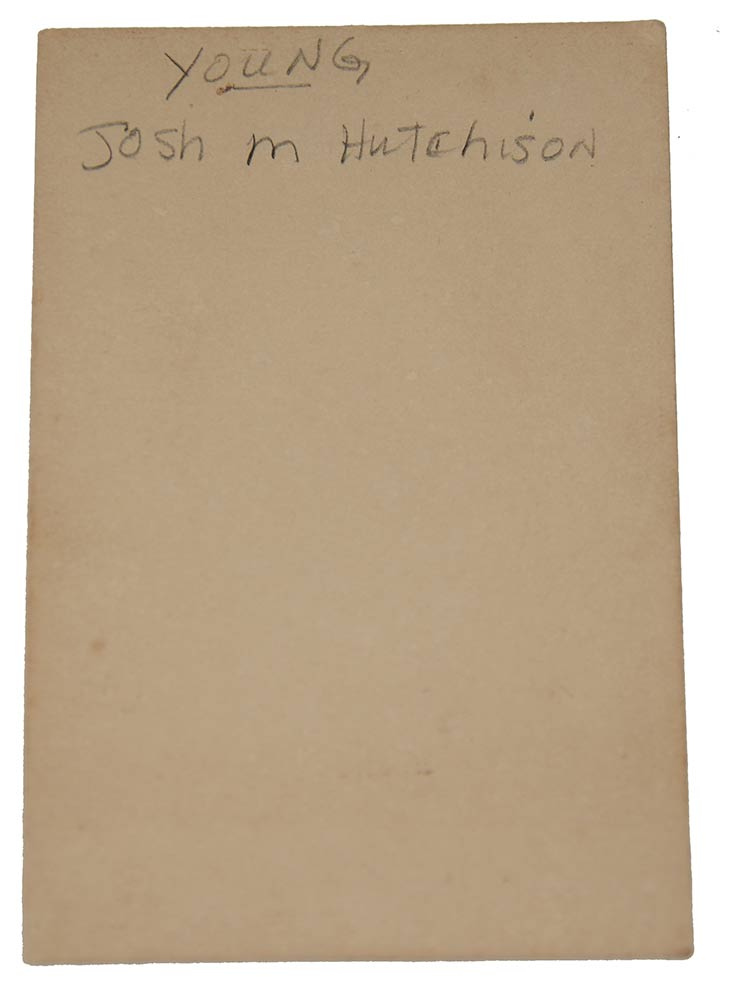 YOUNG
Josh m Hutchison